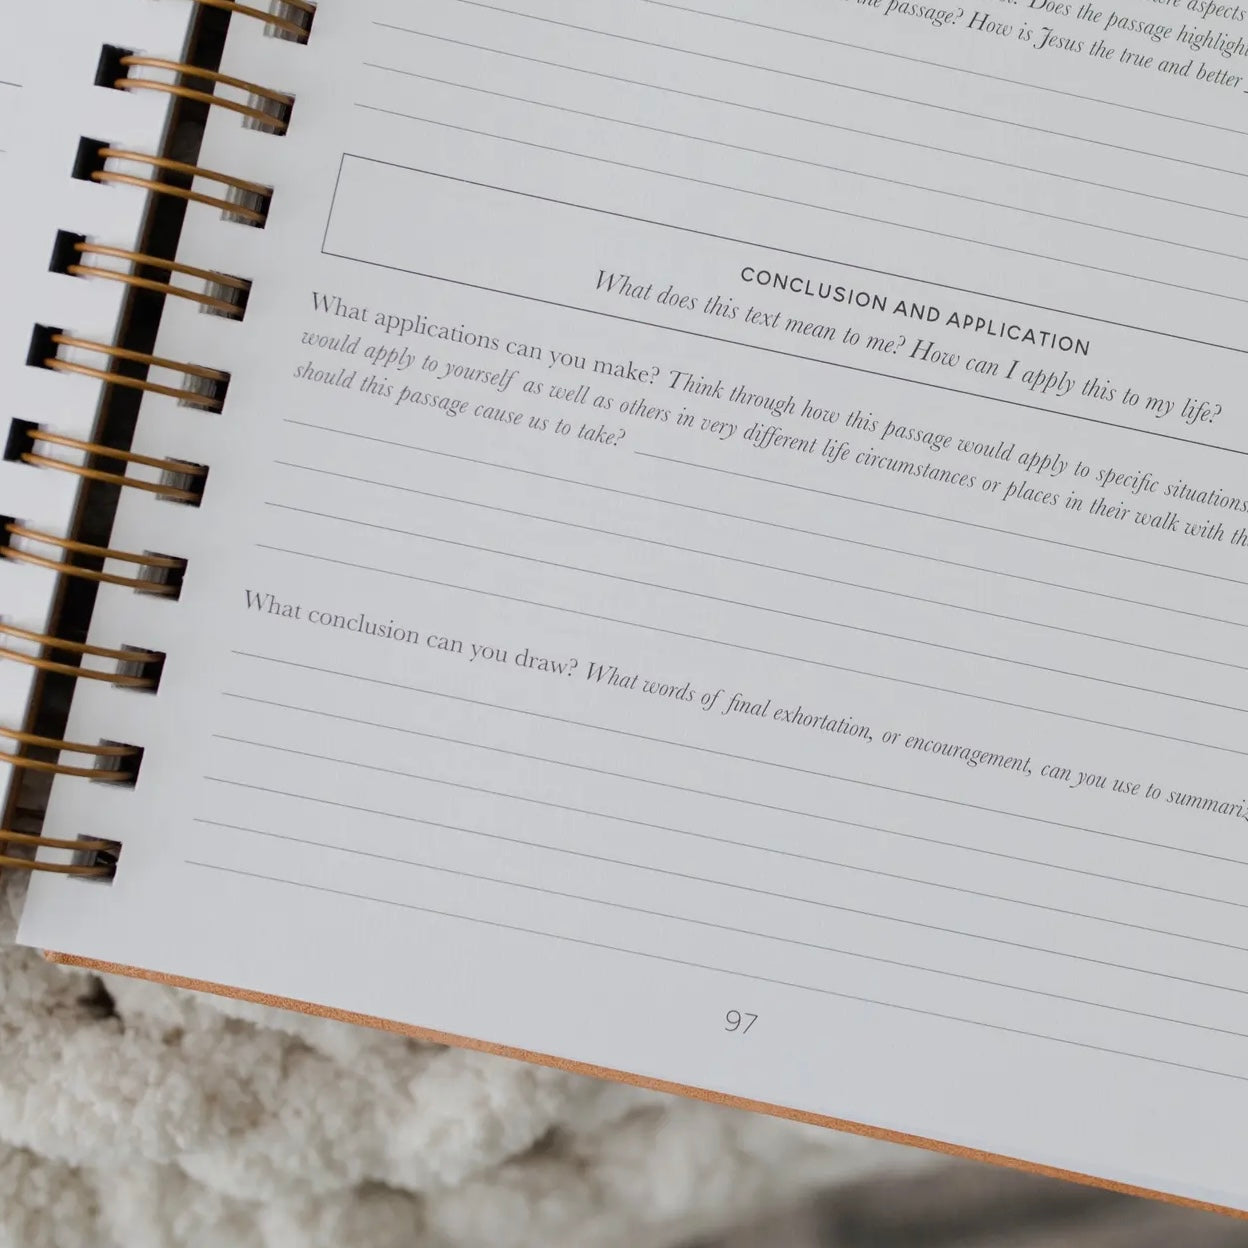 aspects
Does the passage highlight
the passage? How is Jesus the true and better
CONCLUSION AND APPLICATION
What does this text mean to me? How can I apply this to my life?
What applications can you make? Think through how this passage would apply to specific situations.
would apply to yourself as well as others in very different life circumstances or places in their walk with
should this passage cause us to take?
What conclusion can you draw? What words of final exhortation, or encouragement, can you use to
97